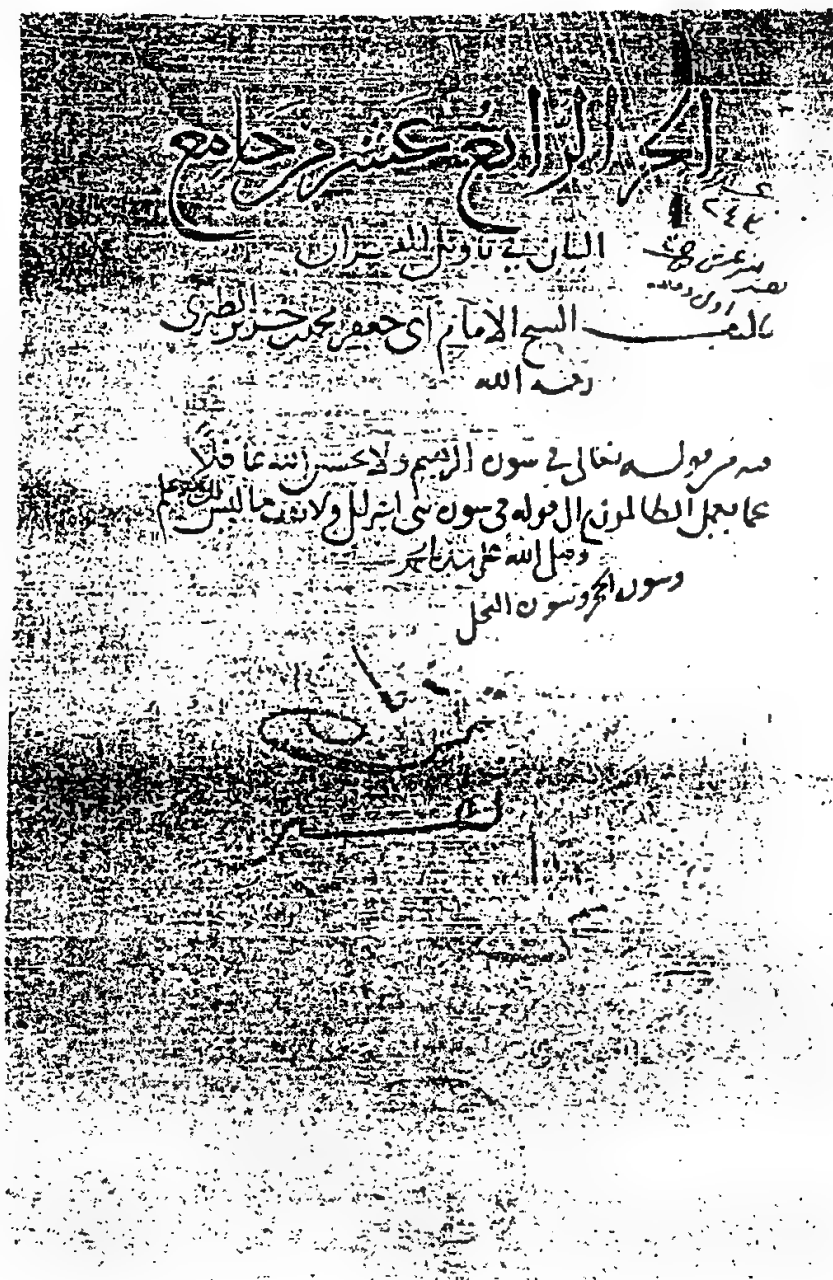 الجز الرابع عشر من جامع
البيان في تاويل القران
تاليف الشيخ الامام ابي جعفر محمد بن جرير الطبري
رحمه الله
فيه من قوله تعالى في سورة ابرهيم ولا تحسبن الله غافلا
عما يعمل الظالمون الى قوله في سورة بني اسرايل ولا تقف ما ليس لك به علم
وصلى الله على سيدنا محمد
وسورة الحجر وسورة النحل